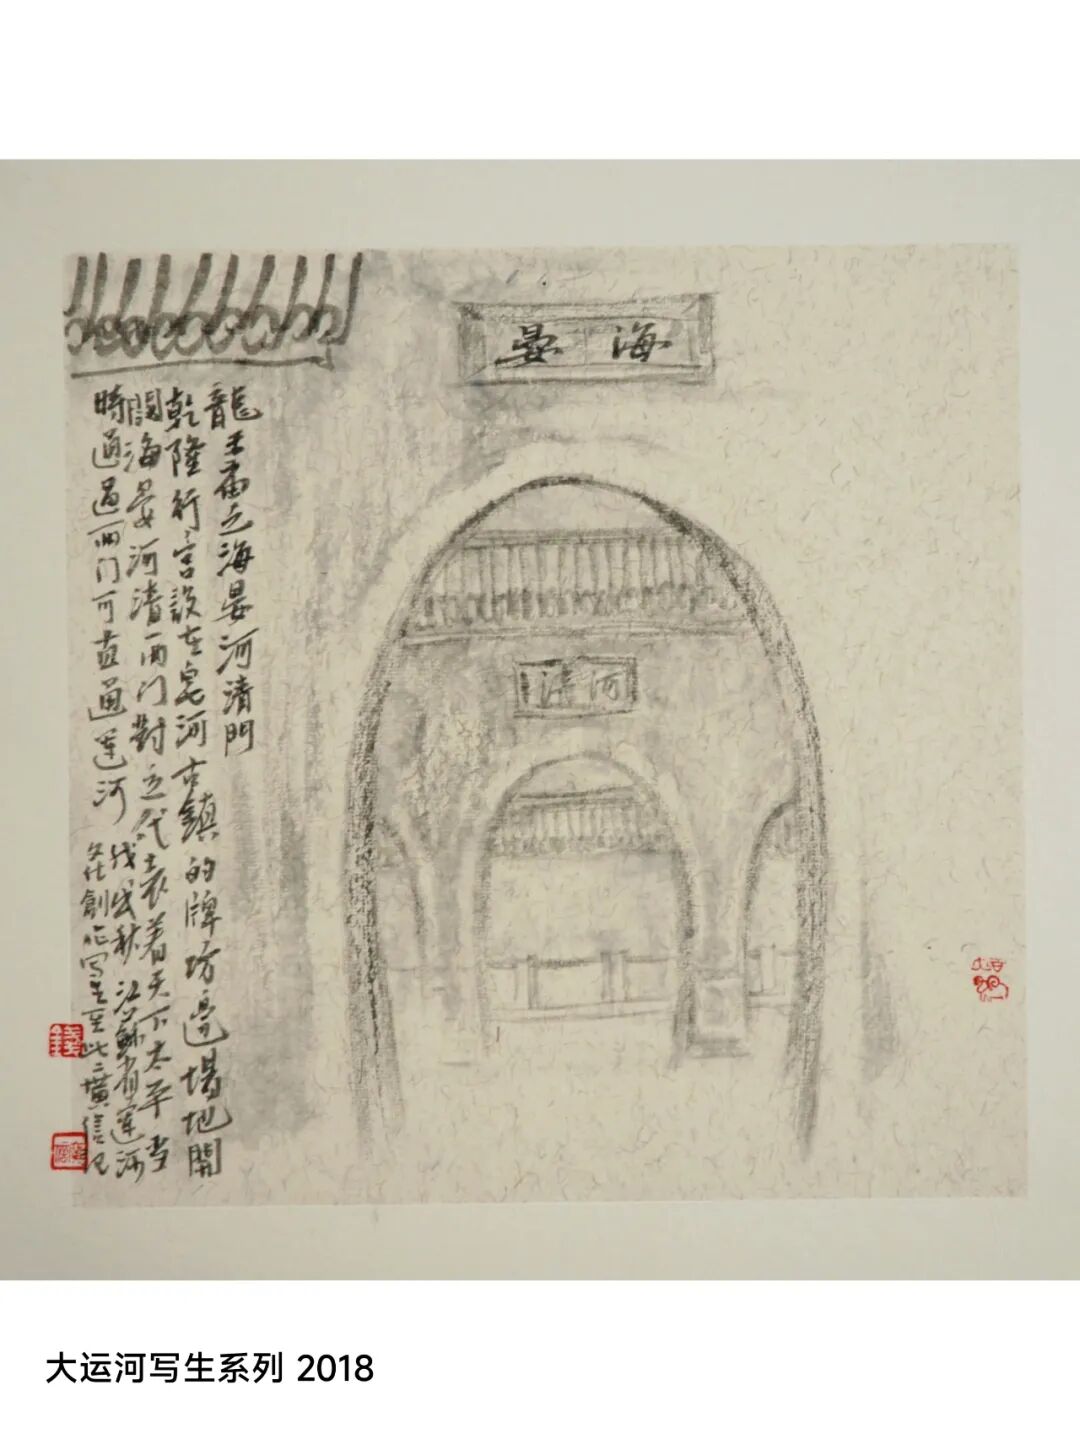 海晏
河清
龍王庙之海晏河清門
乾隆行宫設在皂河古鎮的牌坊邊場地開
闊海晏河清两门對立代表着天下太平当
時通過两门可直通運河
戊戌秋江蘇省運河
文化創作写生至此
錢
大运河写生系列 2018